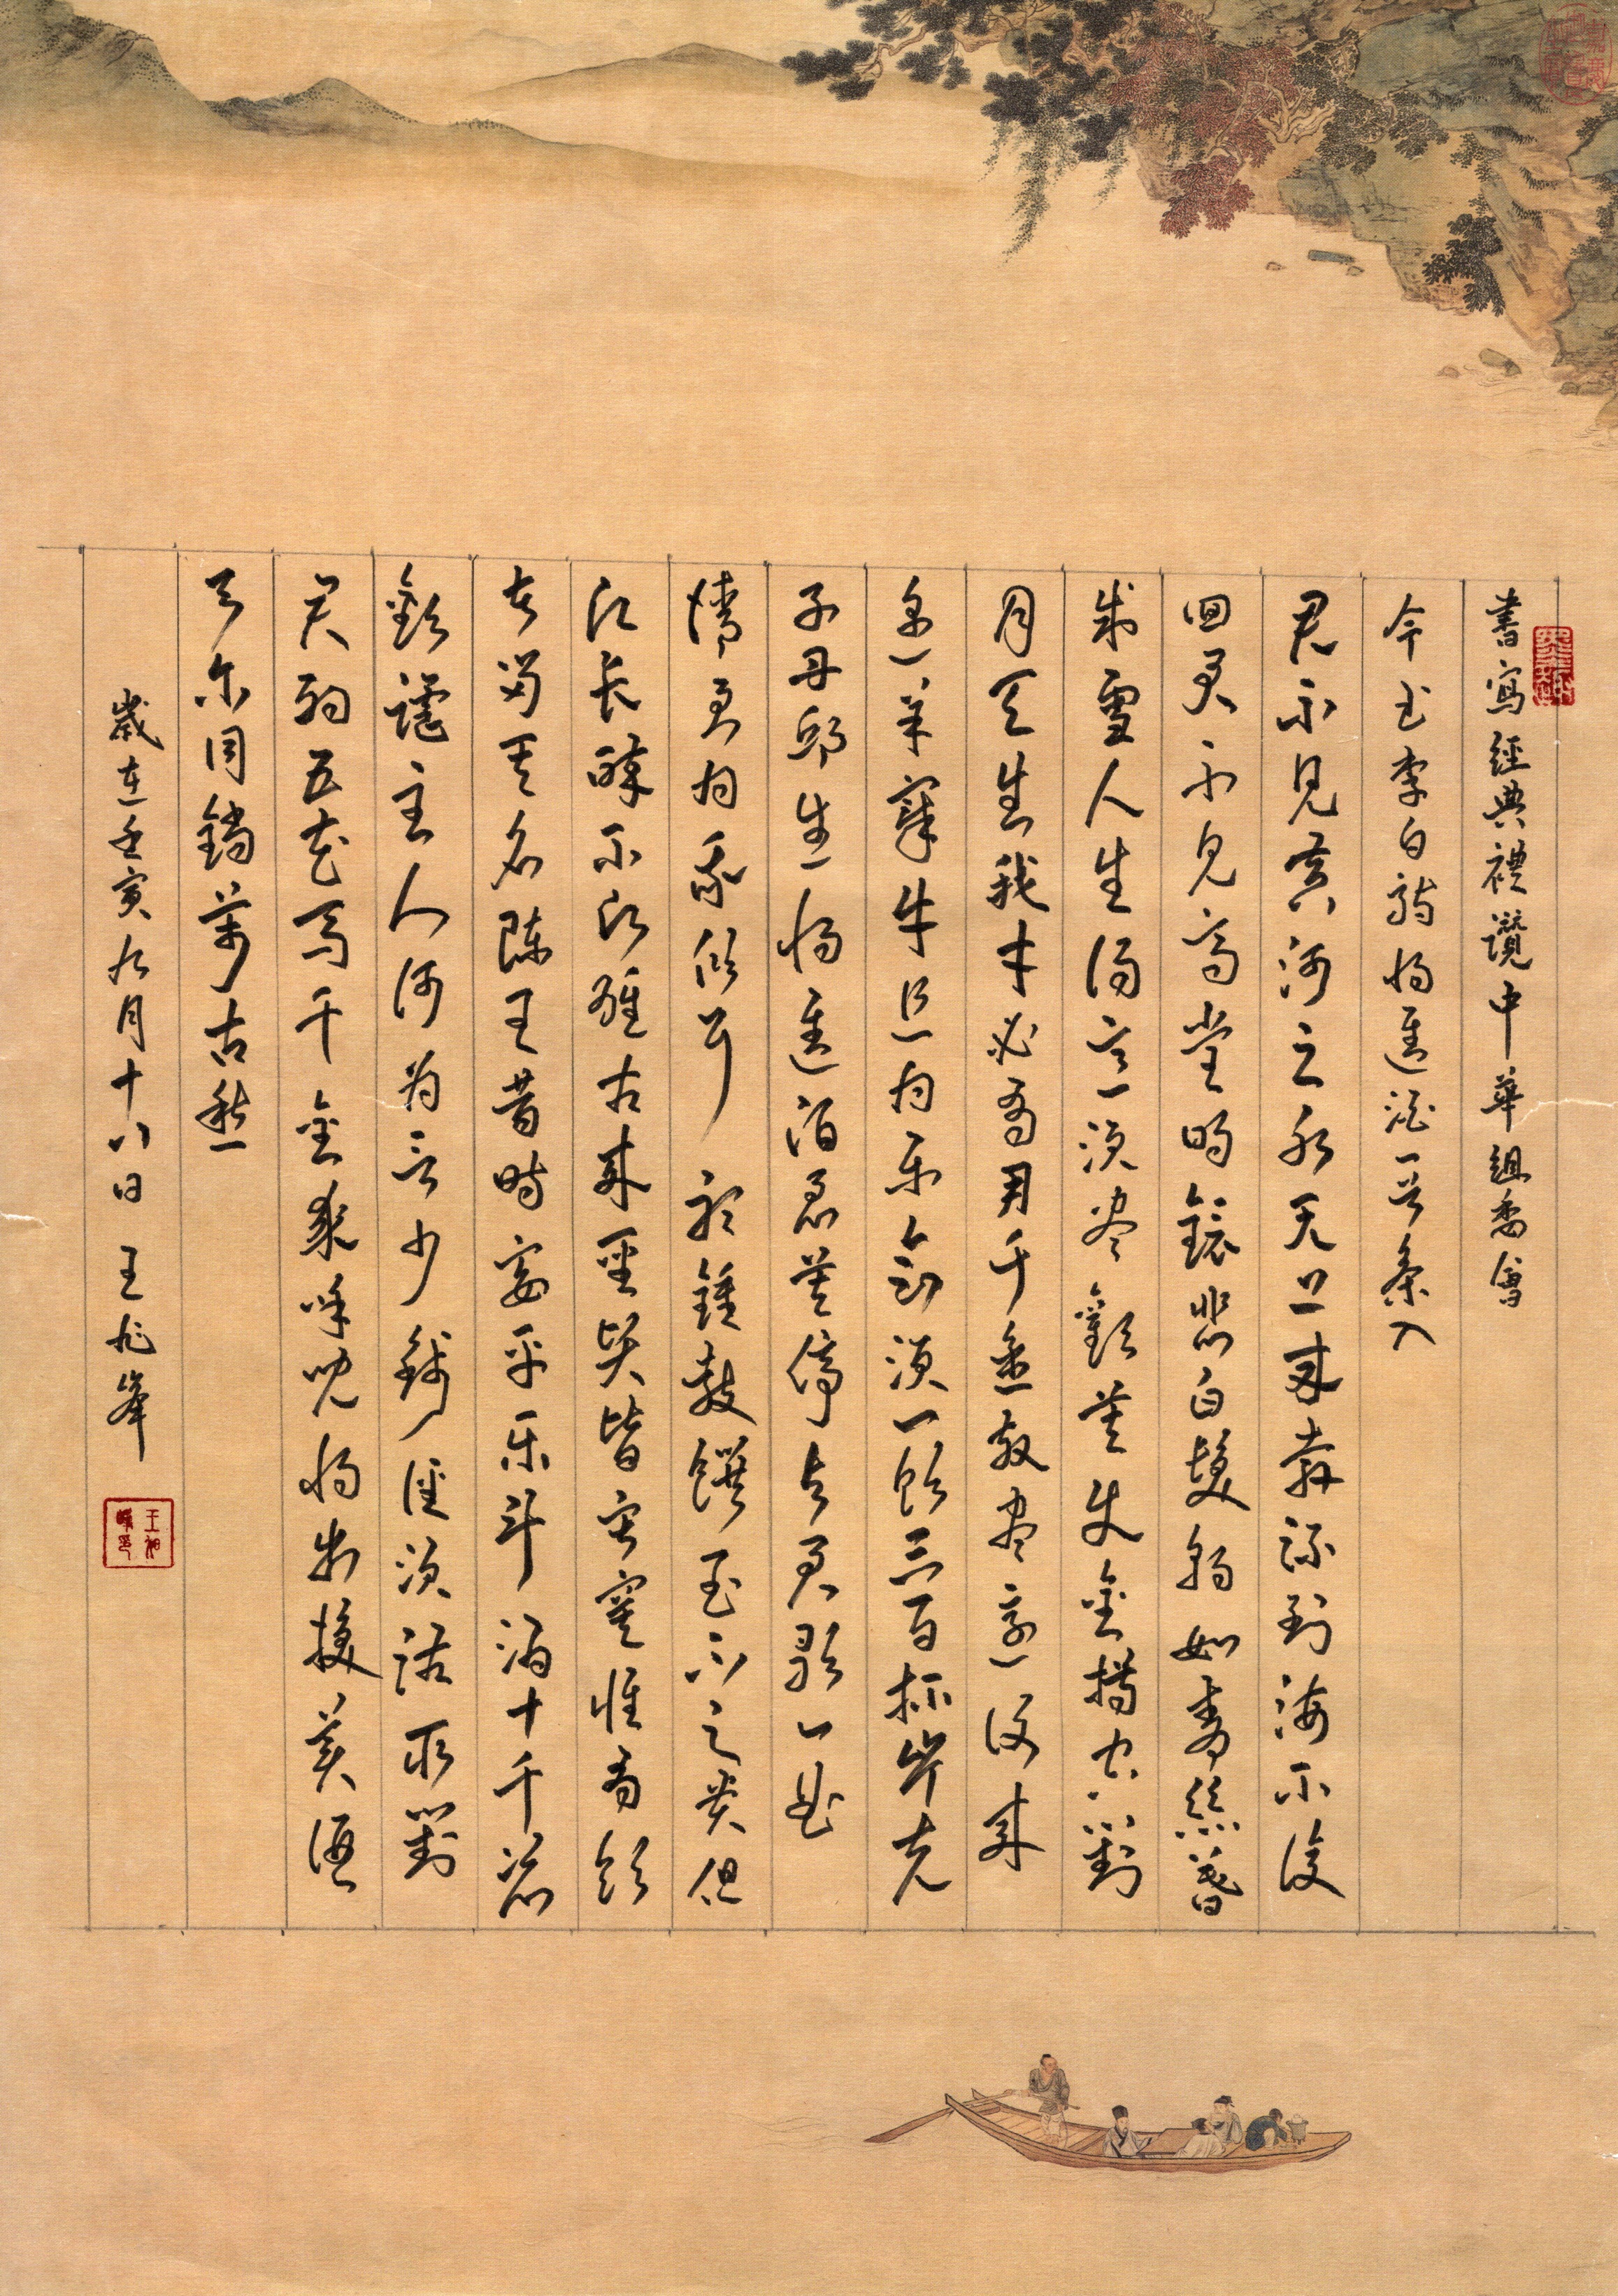 書寫經典禮讚中華組委會
今书李白詩将進酒一首入
君不見黄河之水天上来奔流到海不復
回君不見高堂明鏡悲白髮朝如青絲暮
成雪人生得意須尽歡莫使金樽空對
月天生我才必有用千金散尽還復来
烹羊宰牛且为乐會須一飲三百杯岑夫
子丹邱生将進酒君莫停与君歌一曲
請君为我傾耳聽鐘鼓饌玉不足贵但
願長醉不願醒古来聖賢皆寂寞惟有飲
者留其名陈王昔時宴平乐斗酒十千恣
歡謔主人何为言少錢徑須沽取對
君酌五花馬千金裘呼兒将出換美酒
与尔同銷萬古愁
歲在壬寅九月十八日 王旭峰
王旭峰印